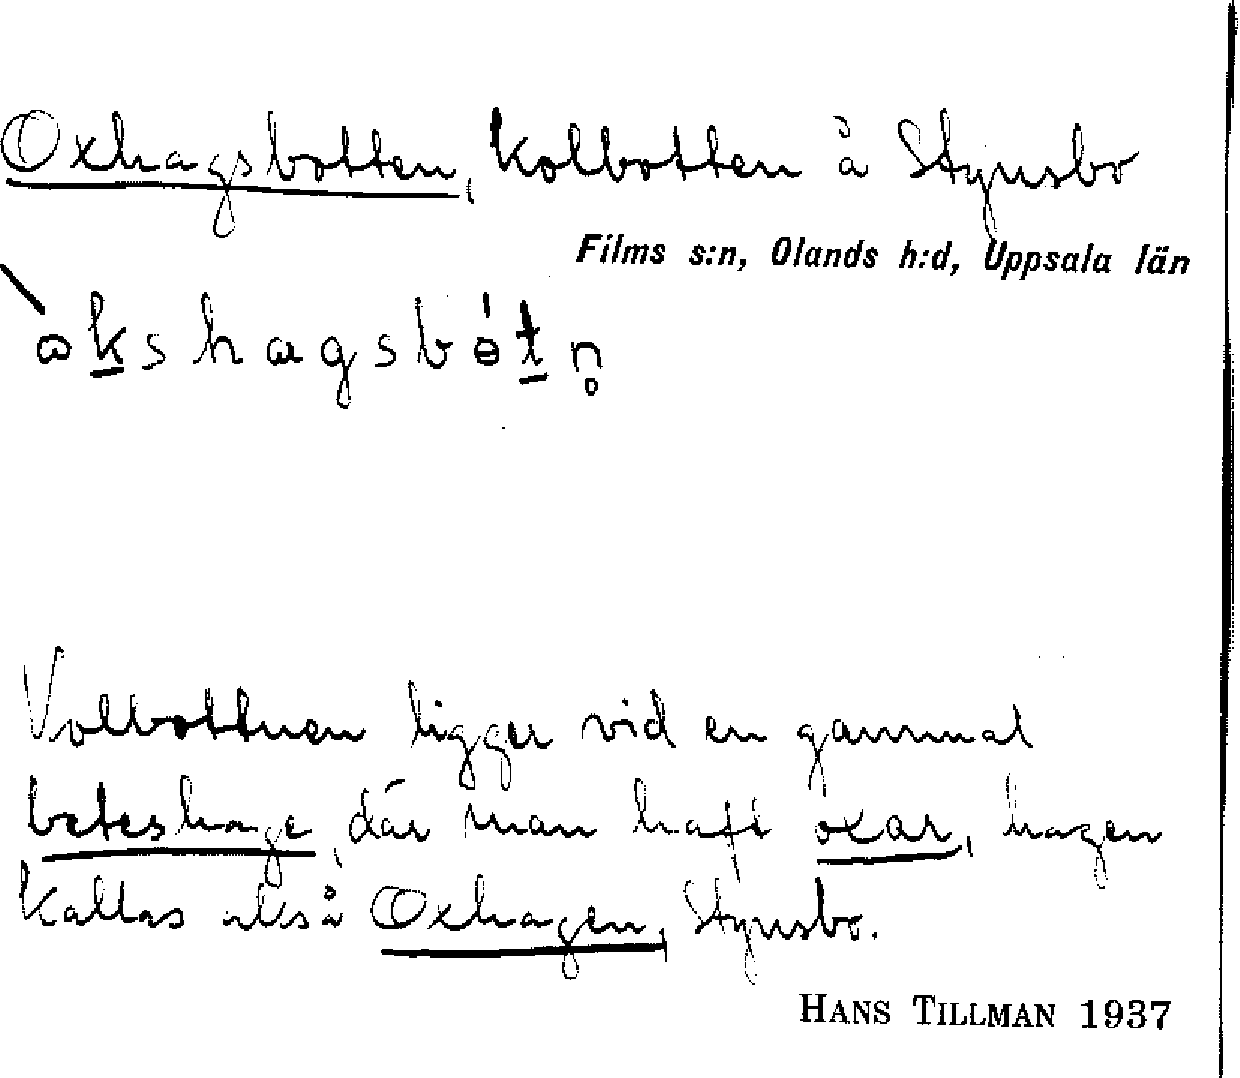 Oxhagsbotten, Kolbotten å Stynsbo
Films s:n, Olands h:d, Uppsala län
Kolbottnen ligger vid en gammal
beteshage, där man haft oxar, hagen
kallas alkså Oxhagen, Stynsbo.
HANS TILLMAN 1937